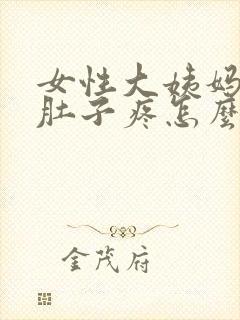 女性大姨妈
肚子疼怎麼
金茂府